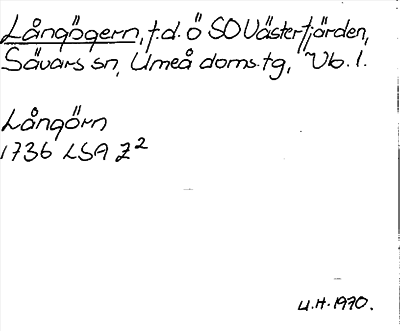 Långögern, f.d. ö SO Västerfjärden,
Sävars sn, Umeå doms.tg, Vb. l.
Långörn
1736 LSA Z²
U.H. 1970.